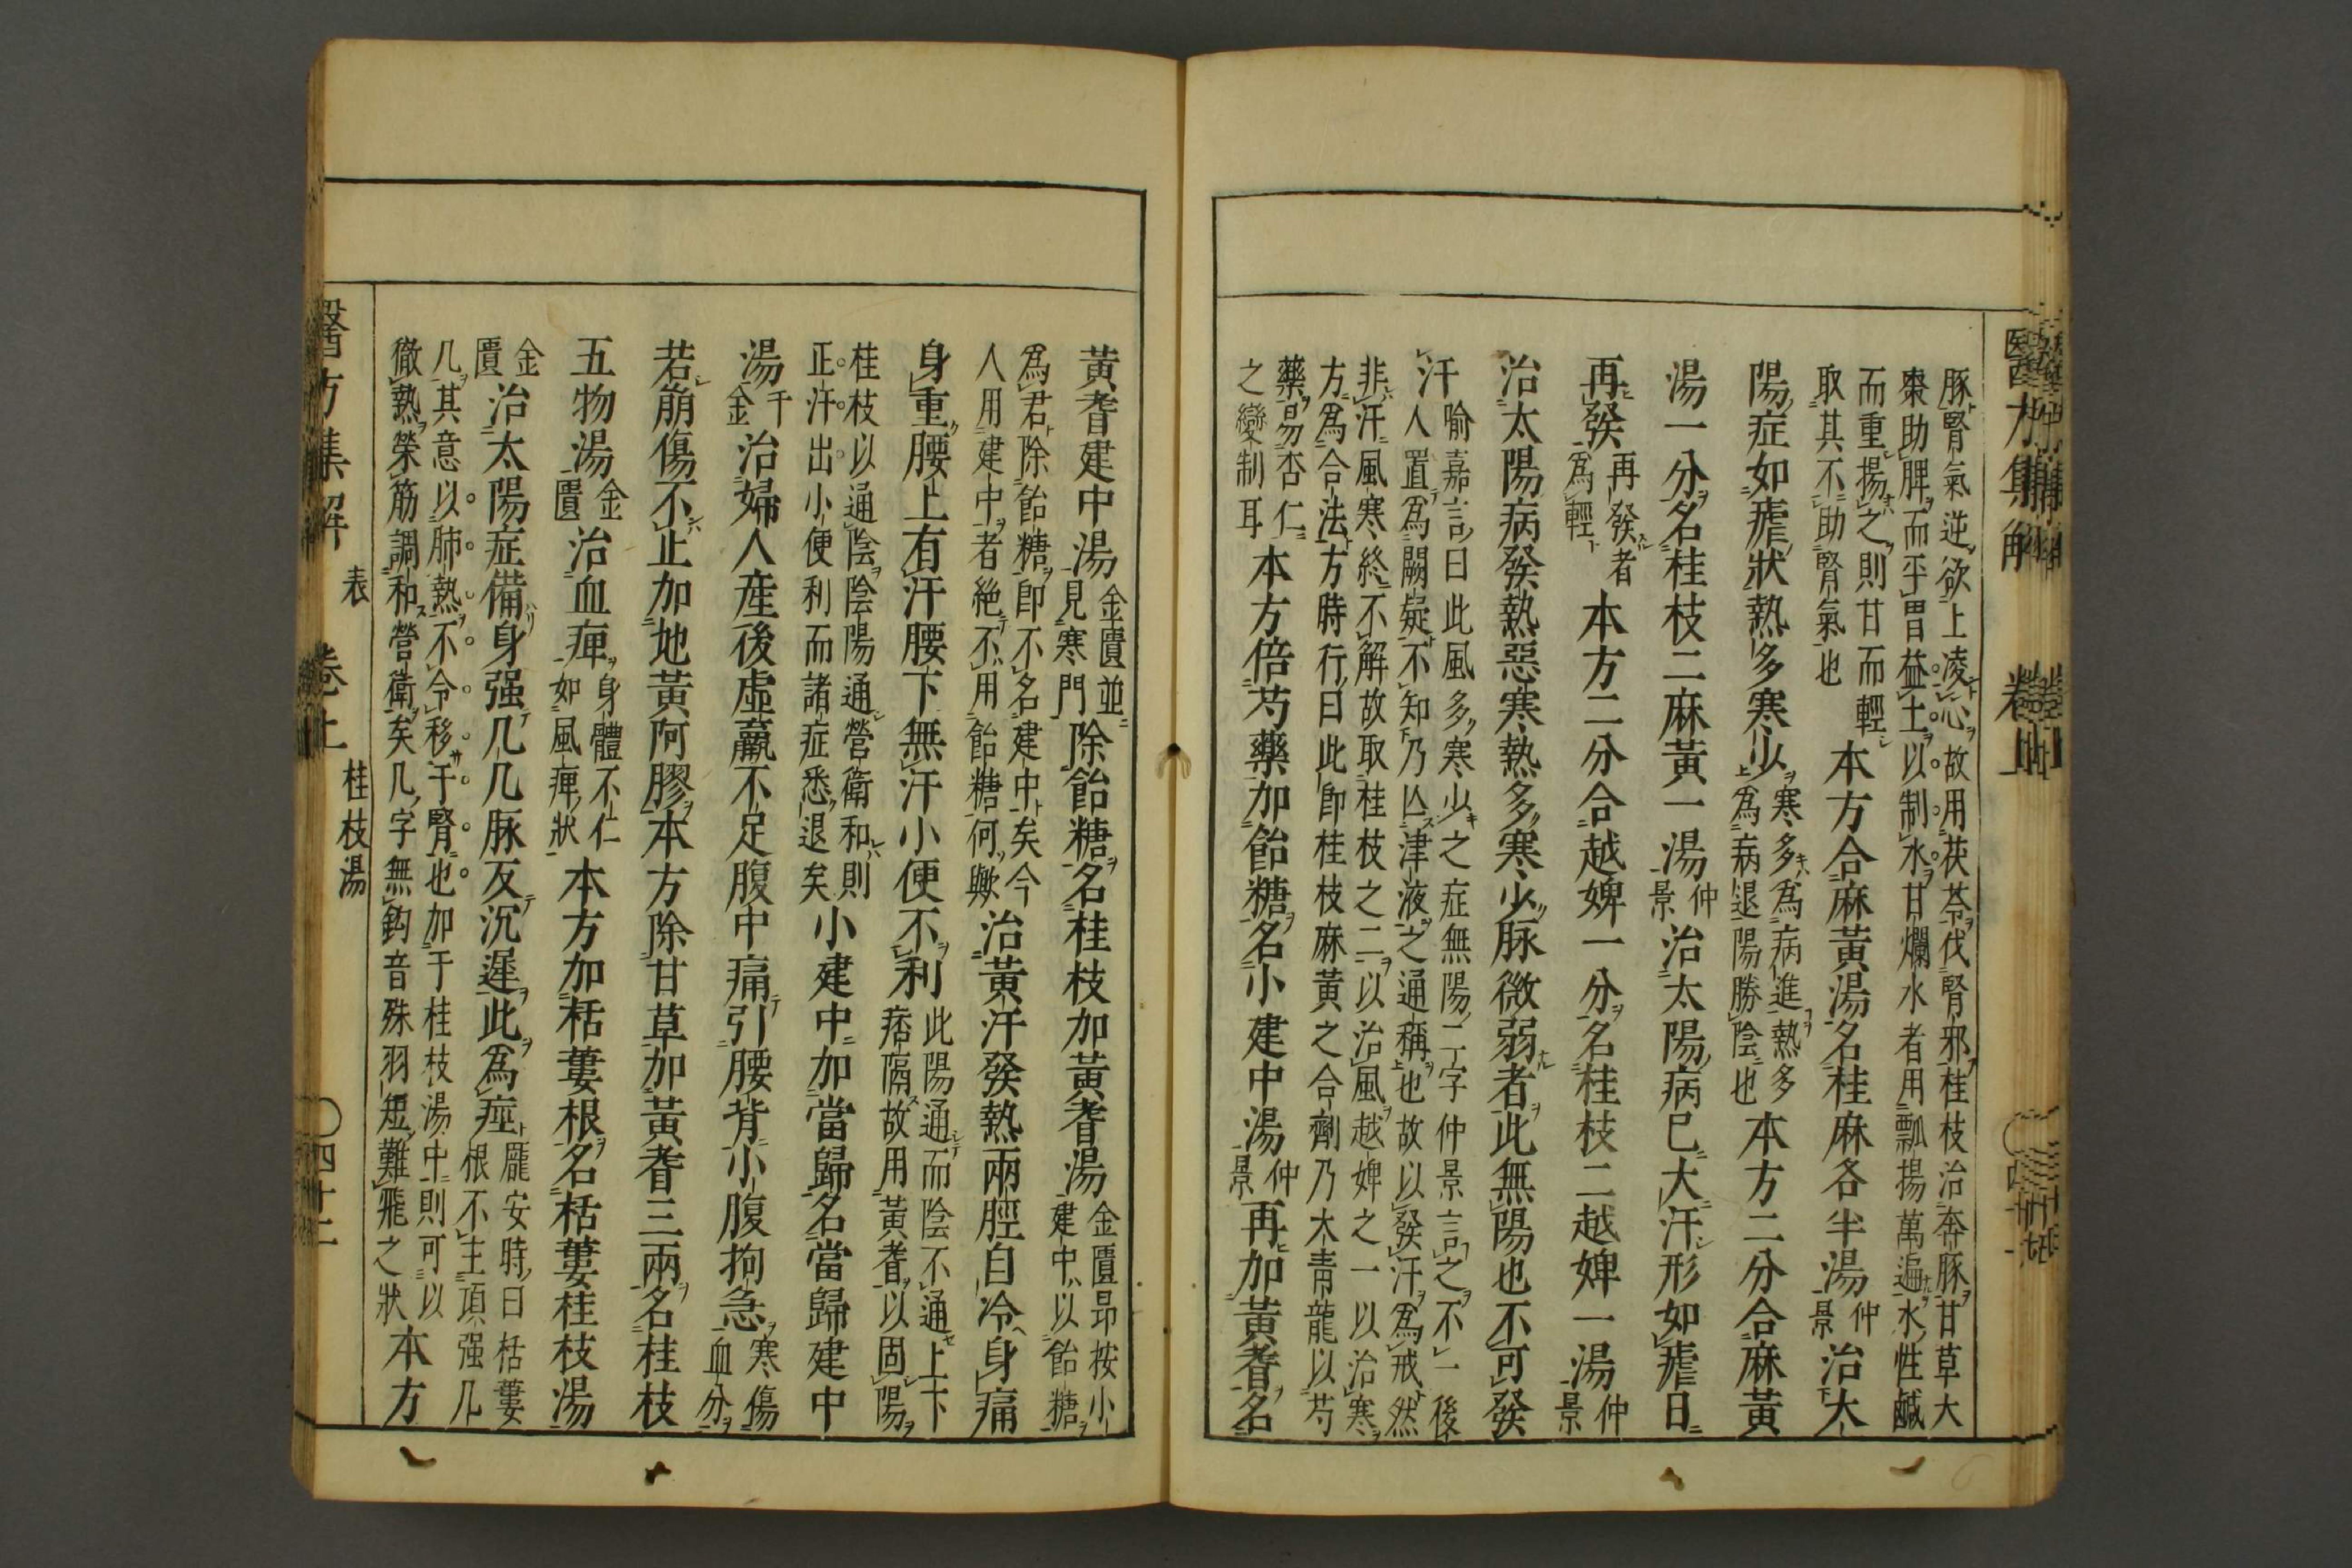 豚腎氣逆欲上凌心故用茯苓伐腎邪桂枝治奔豚甘草大
棗助脾而平胃益土以制水甘爛水者用瓢揚萬遍水性鹹
而重揚之則甘而輕
取其不助腎氣也
本方合麻黃湯名桂麻各半湯
仲
景
治太
陽症如瘧狀熱多寒少
寒多爲病進熱多
爲病退陽勝陰也
本方二分合麻黃
湯一分名桂枝二麻黃一湯
仲
景
治太陽病已大汗形如瘧日
再發
再發者
爲輕
本方二分合越婢一分名桂枝二越婢一湯
仲
景
治太陽病發熱惡寒熱多寒少脉微弱者此無陽也不可發
汗
喻嘉言曰此風多寒少之症無陽二字仲景言之不一後
人置爲闕疑不知乃亾津液之通稱也故以發汗爲戒然
非汗風寒終不解故取桂枝之二以治風越婢之一以治寒
方爲合法方時行曰此卽桂枝麻黃之合劑乃大青龍以芍
藥易杏仁
之變制耳
本方倍芍藥加飴糖名小建中湯
仲
景
再加黃耆名
黃耆建中湯
金匱並
見寒門
除飴糖名桂枝加黃耆湯
金匱昂按小
建中以飴糖
爲君除飴糖卽不名建中矣今
人用建中者絶不用飴糖何歟
治黃汗發熱兩脛自冷身痛
身重腰上有汗腰下無汗小便不利
此陽通而陰不通上下
痞隔故用黃耆以固陽
桂枝以通陰陰陽通營衛和則
正汗出小便利而諸症悉退矣
小建中加當歸名當歸建中
湯
千
金
治婦人産後虛羸不足腹中痛引腰背小腹拘急
寒傷
血分
若崩傷不止加地黃阿膠本方除甘草加黃耆三兩名桂枝
五物湯
金
匱
治血痺
身體不仁
如風痺狀
本方加栝蔞根名栝蔞桂枝湯
金
匱
治太陽症備身强几几脉反沉遲此爲痙
龎安時曰栝蔞
根不主項强几
几其意以肺熱不令移于腎也加于桂枝湯中則可以
徹熱榮筋調和營衛矣几字無鈎音殊羽短難飛之狀
本方
醫方集解 表 卷上 桂枝湯 〇四十二